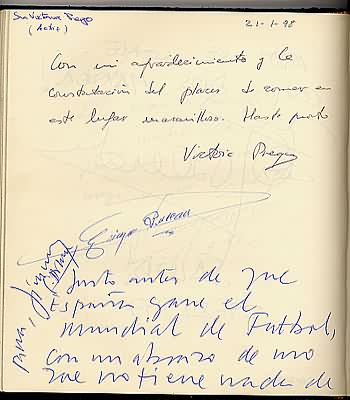 Sra Victoria Prego
(Actriz)
21-1-98
Con mi agradecimiento y la
constatación del placer de comer en
este lugar maravilloso. Hasta pronto
Victoria Prego
Enrique
Justo antes de que
españa gane el
mundial de Futbol,
con un abrazo de uno
que no tiene nada de
Para